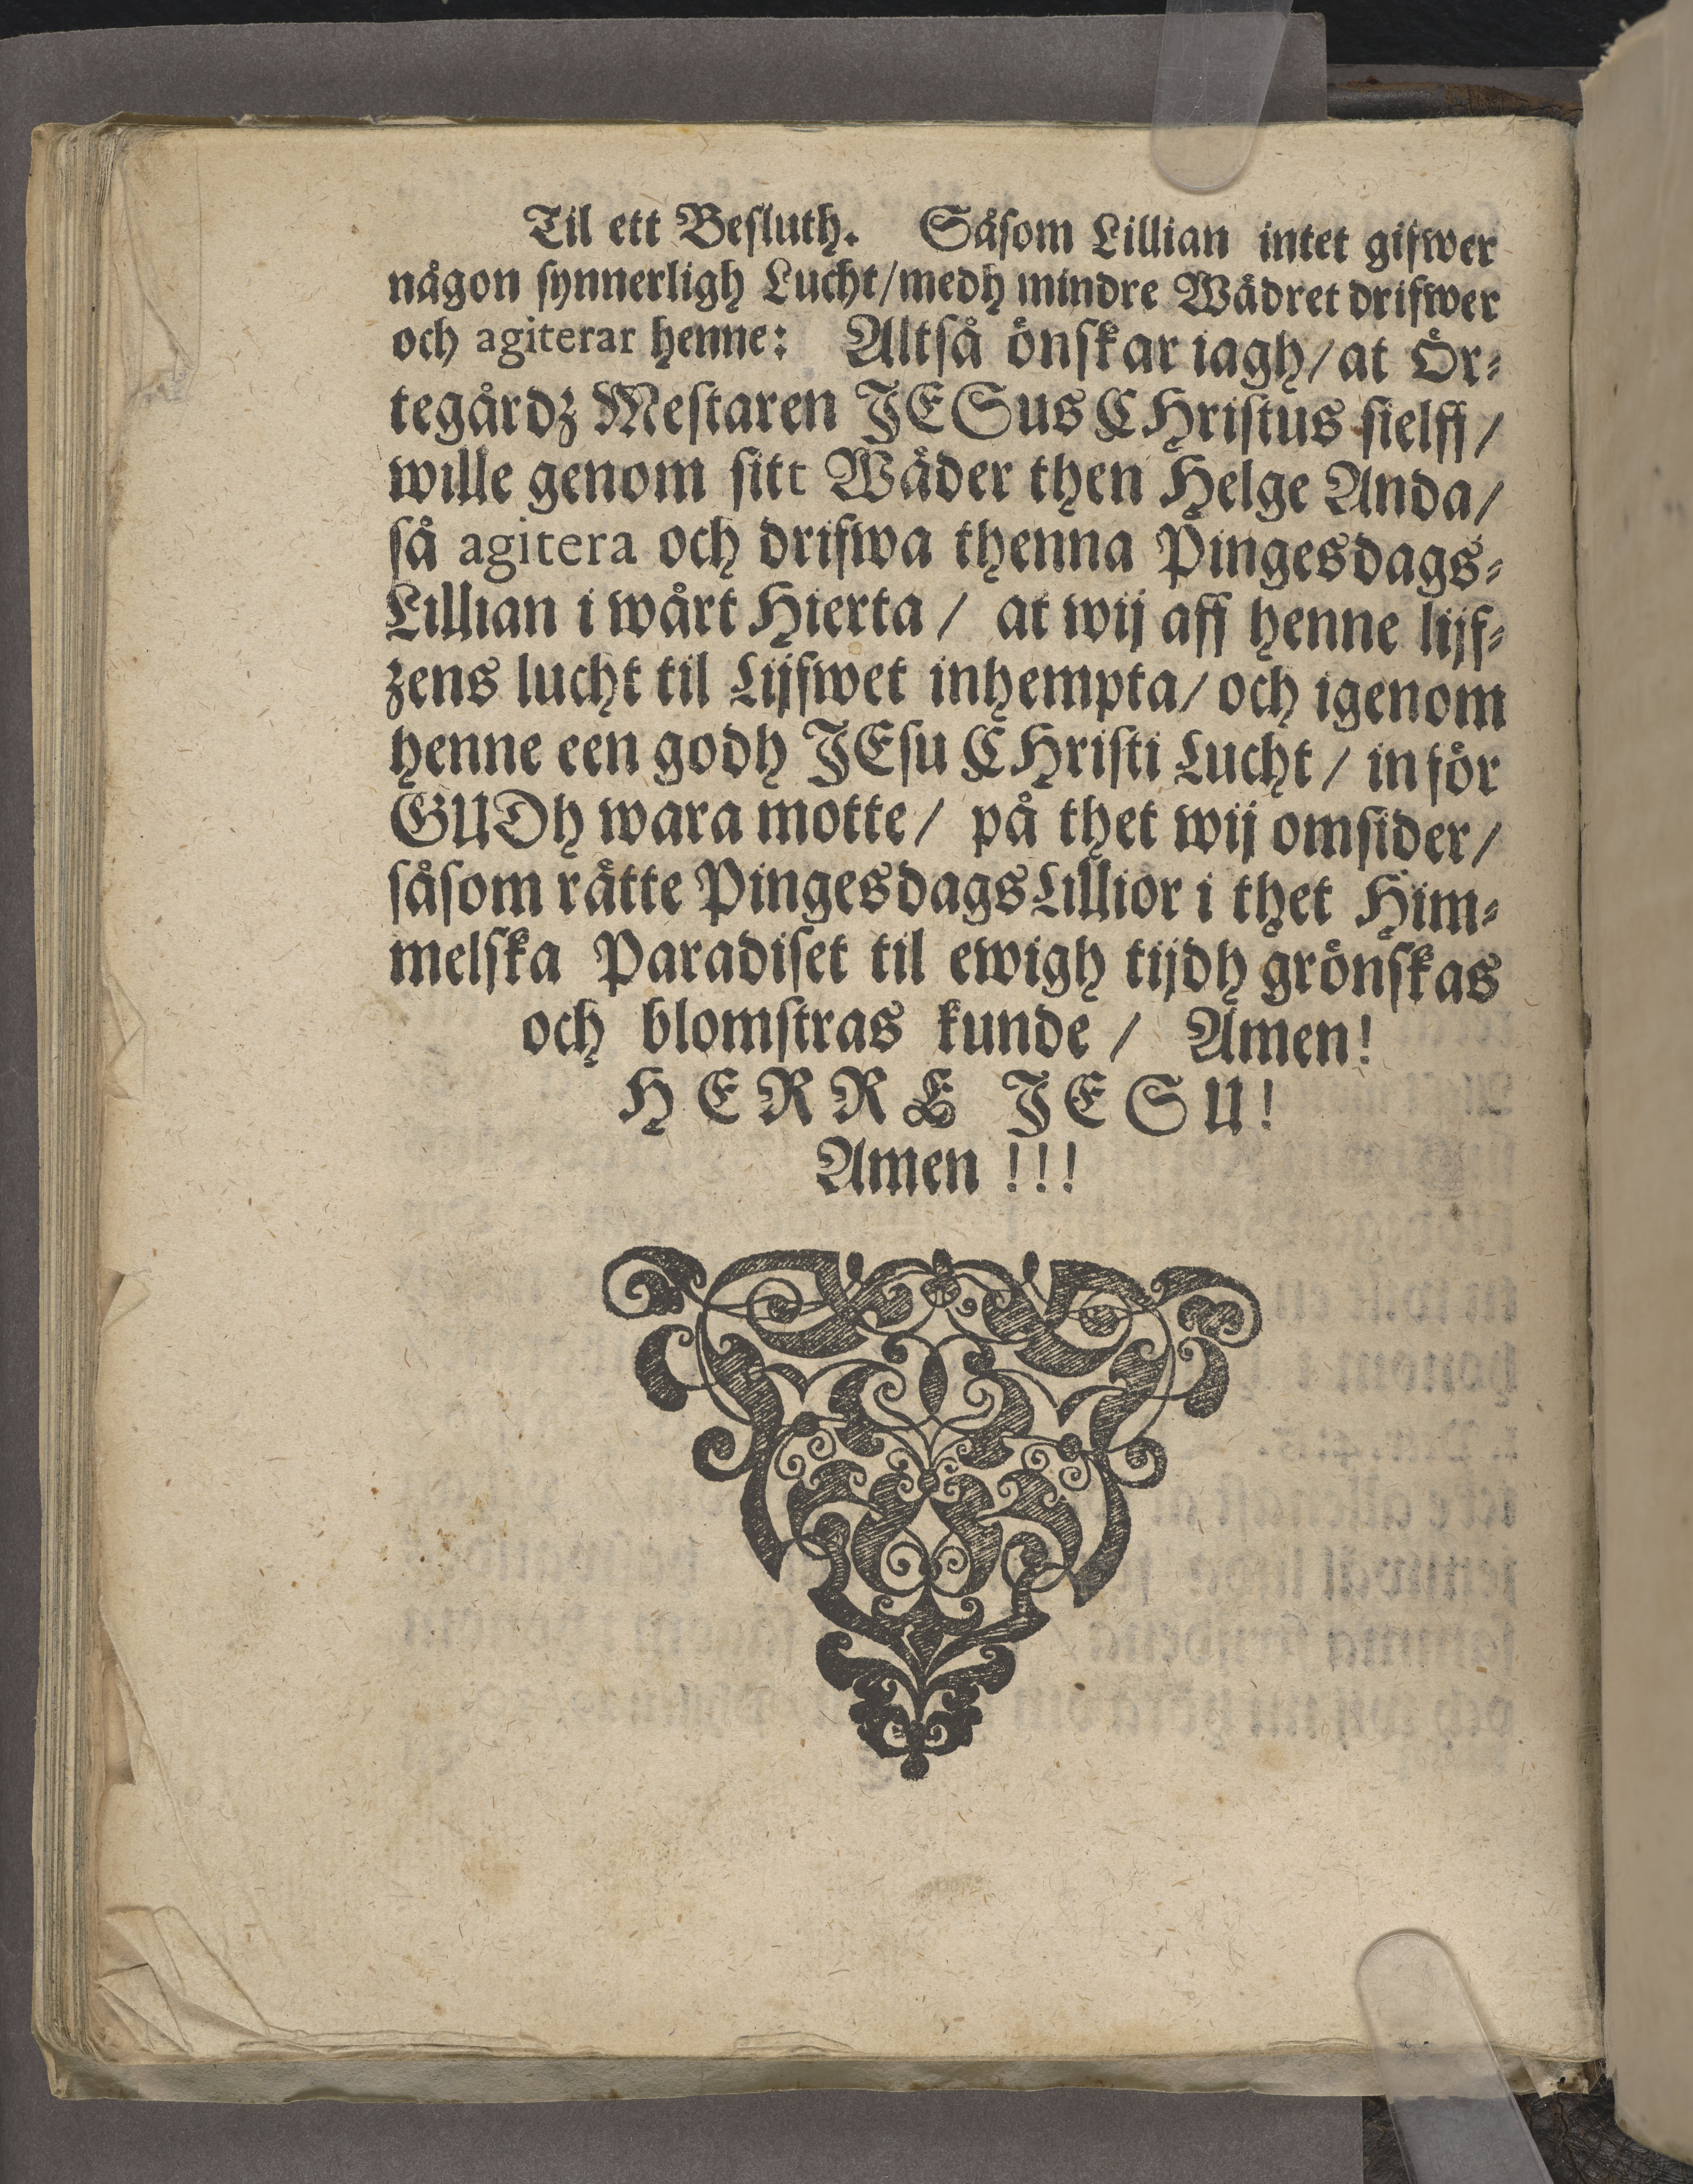 Til ett Besluth. Såsom Lillian intet gifwer
någon synnerligh Lucht/medh mindre Wädret drifwer
och agiterar henne: Altså önskar iagh/at Ör-
tegårdz Mestaren JESus CHristus sielff/
wille genom sitt Wäder then Helge Anda/
så agitera och drifwa thenna Pingesdags-
Lillian i wårt Hierta / at wij aff henne lijf-
zens lucht til Lijfwet inhempta/ och igenom
henne een godh JEsu CHristi Lucht / inför
GUDh wara motte/ på thet wij omsider/
såsom rätte PingesdagsLillior i thet Him-
melska Paradiset til ewigh tijdh grönskas
och blomstras kunde / Amen!
HERRE JESU!
Amen !!!